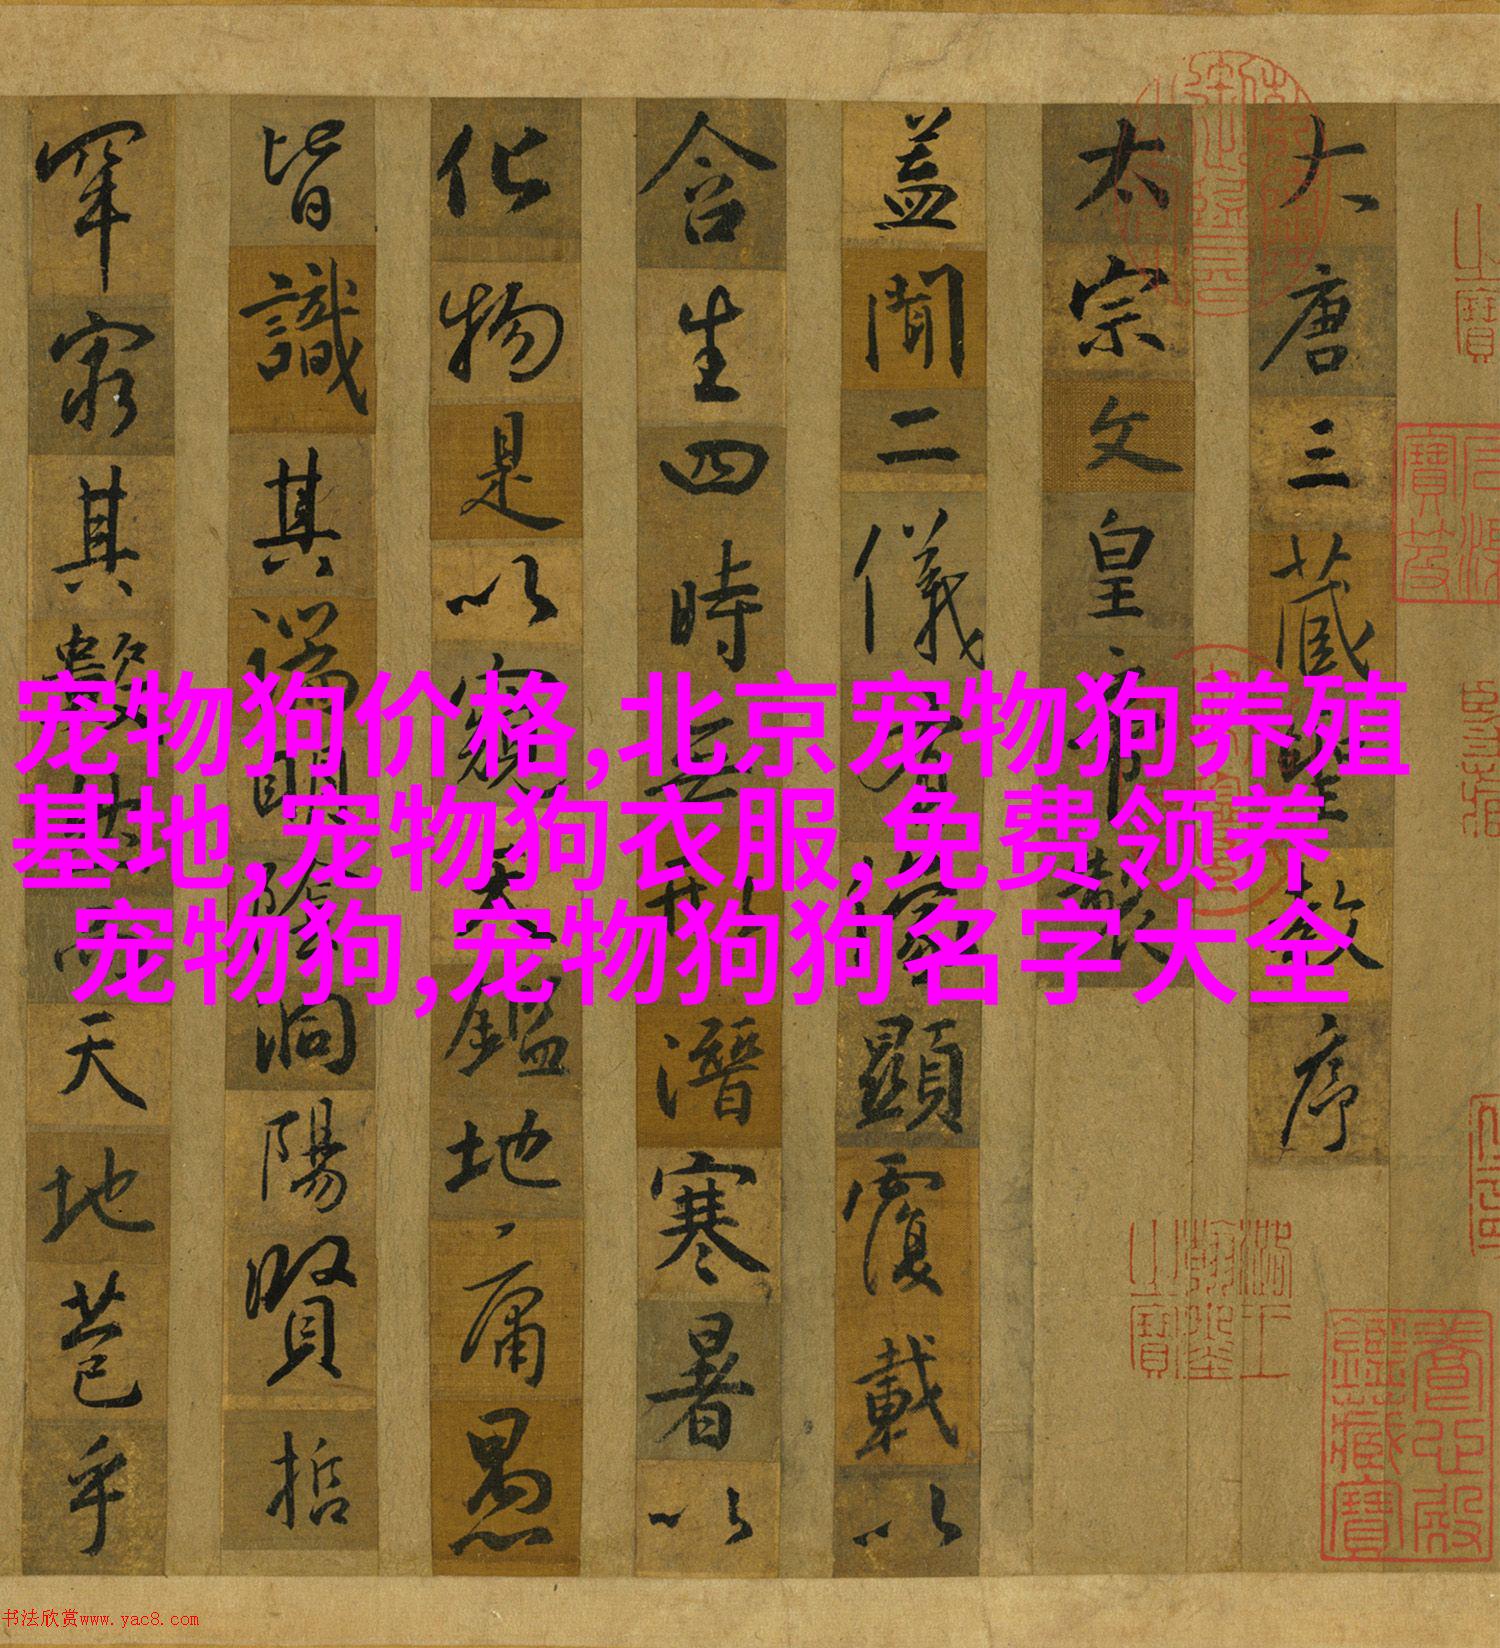 宠物狗价格,北京宠物狗养殖
基地,宠物狗衣服,免费领养
宠物狗,宠物狗狗名字大全
大唐三藏聖教序
太宗文皇帝製
盖聞二儀有像顯覆載以
含生四時無形潛寒暑以
化物是以窺天鑑地庸愚
皆識其端明陰洞陽賢哲
罕窮其數然而天地苞乎
養心殿鑑藏寶
书法欣赏www.yac8.com